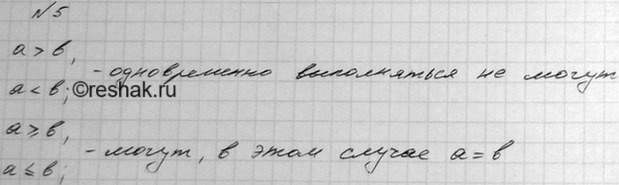 №5
a > b,
- одновременно выполняться не могут
a < b;
©reshak.ru
a ⩾ b,
- могут, в этом случае a = b
a ⩽ b;